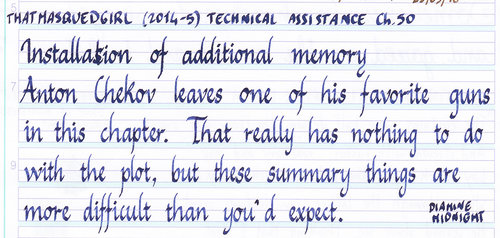 THATMASQUEDGIRL (2014-5) TECHNICAL ASSISTANCE Ch.50
Installation of additional memory
Anton Chekov leaves one of his favorite guns
in this chapter. That really has nothing to do
with the plot, but these summary things are
more difficult than you'd expect.
DIAMINE
MIDNIGHT